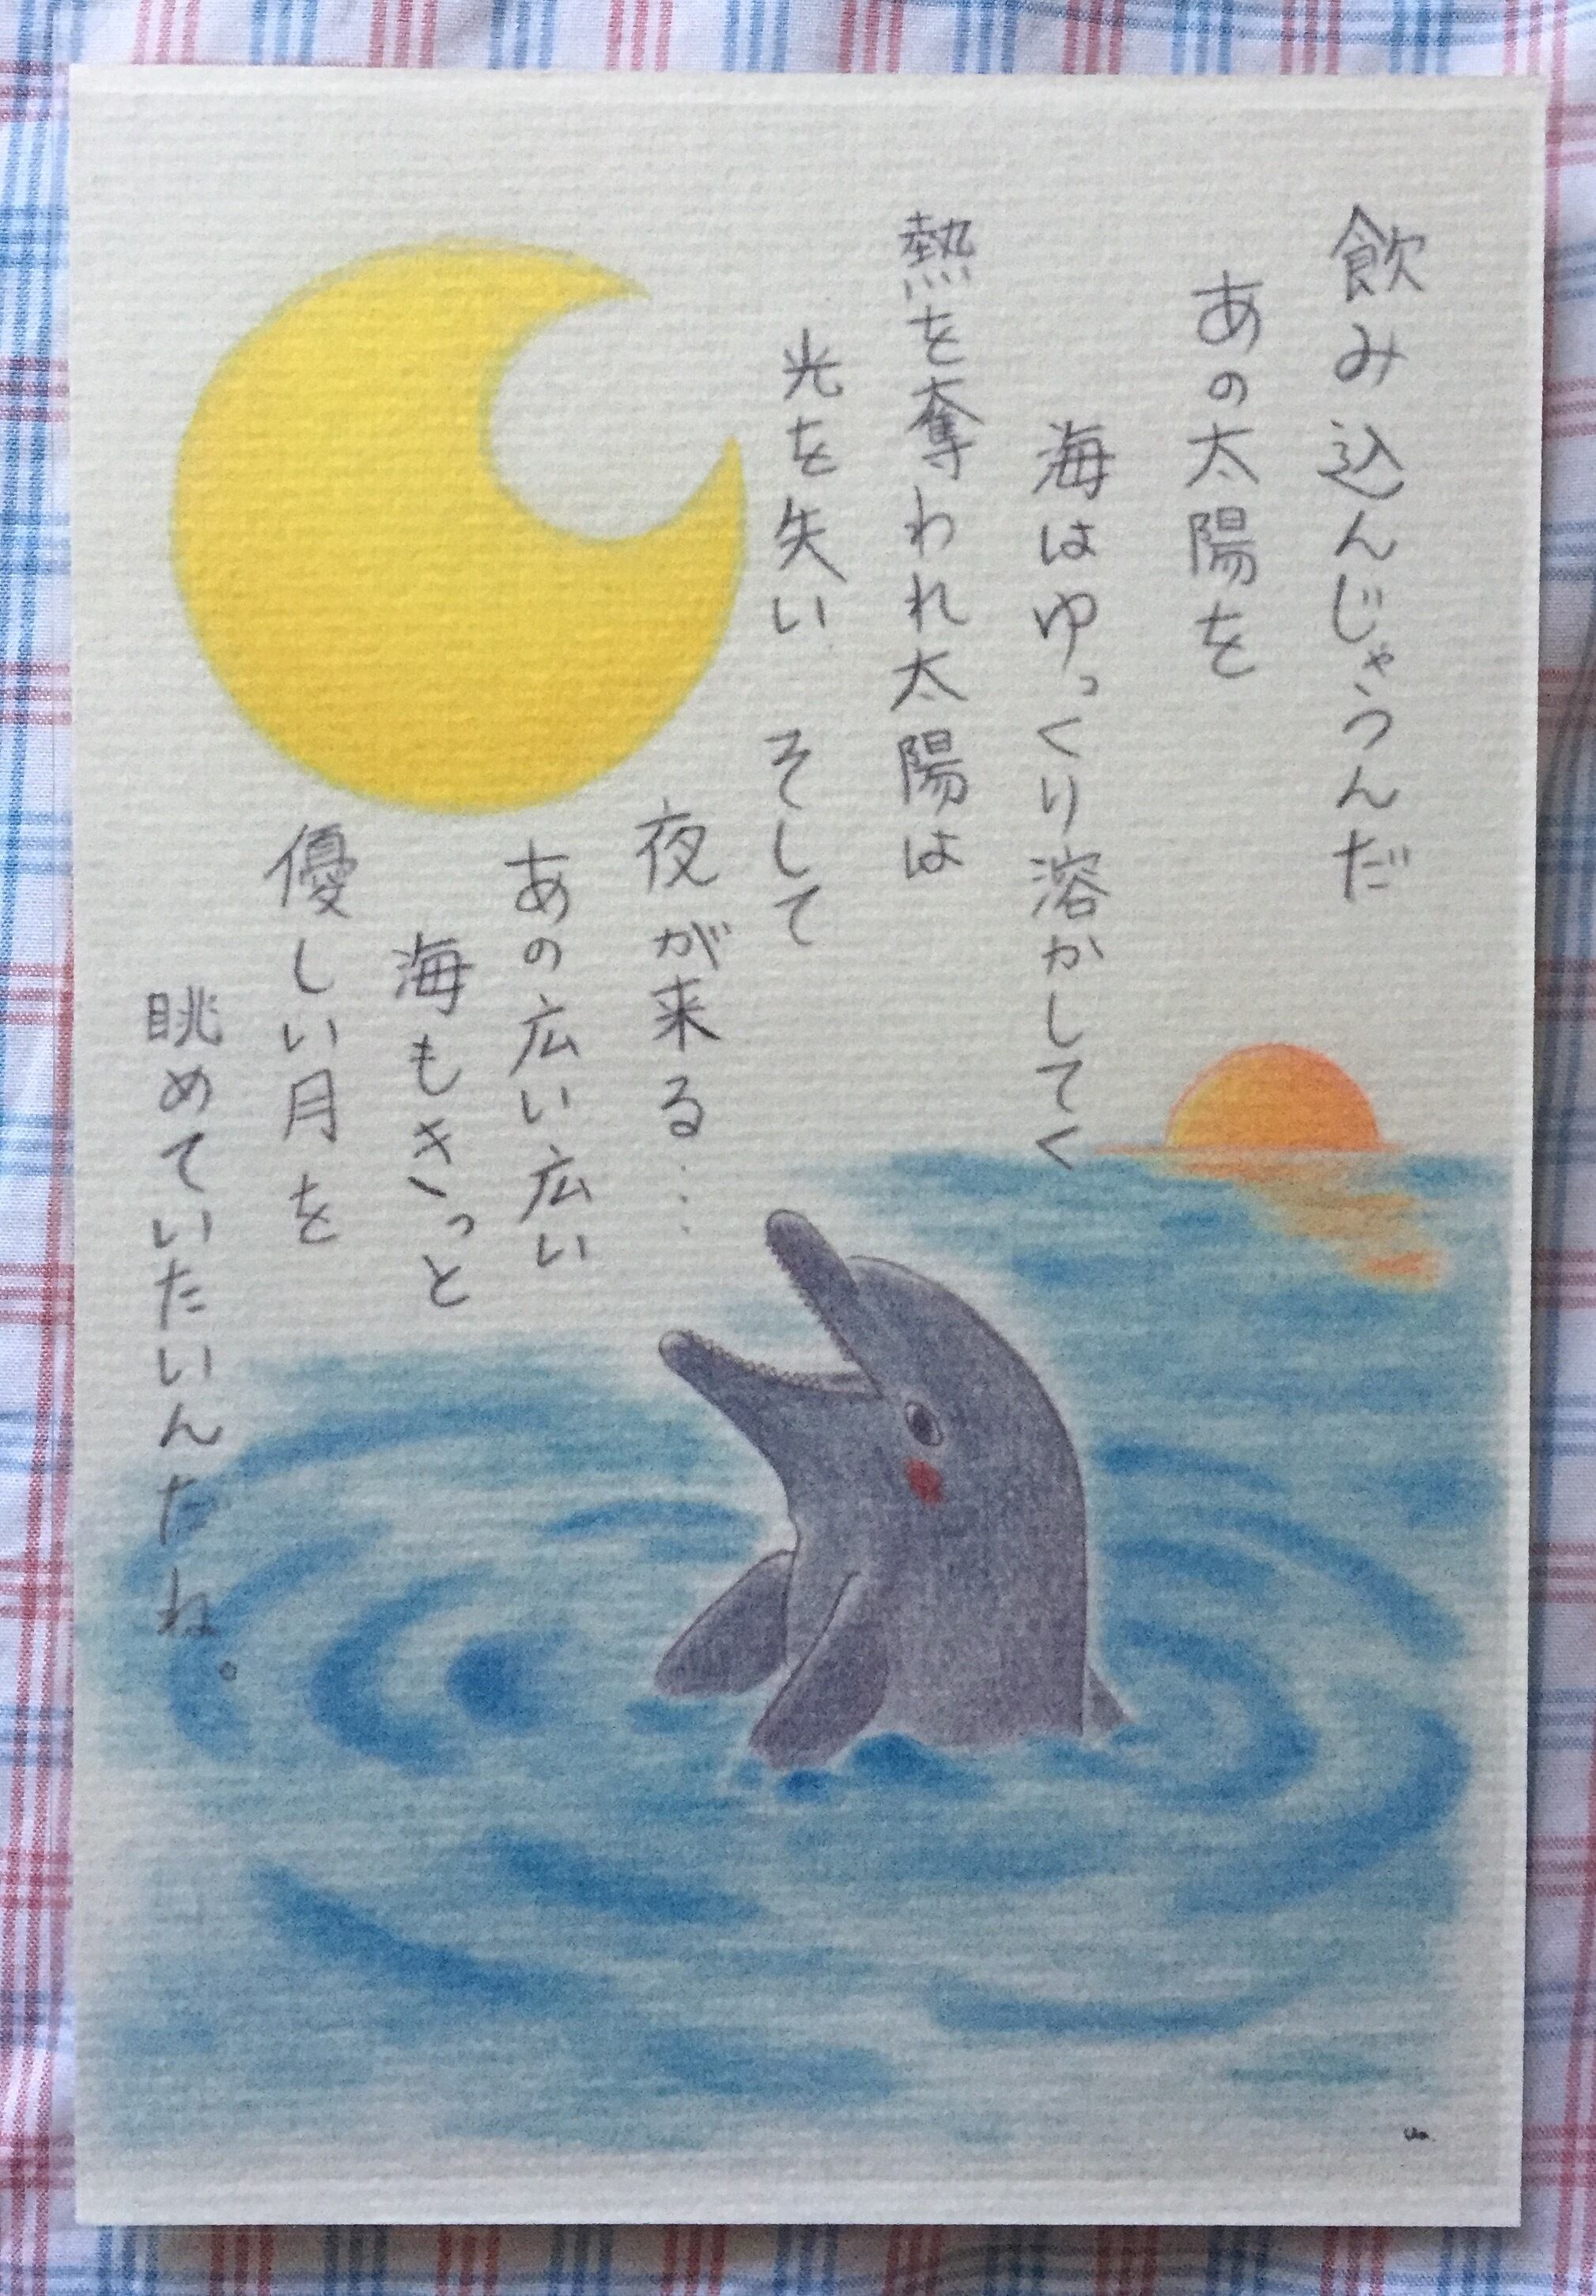 飲み込んじゃうんだ
あの太陽を
海はゆっくり溶かしてく
熱を奪われ太陽は
光を失い そして
夜が来る…
あの広い広い
海もきっと
優しい月を
眺めていたいんだね。